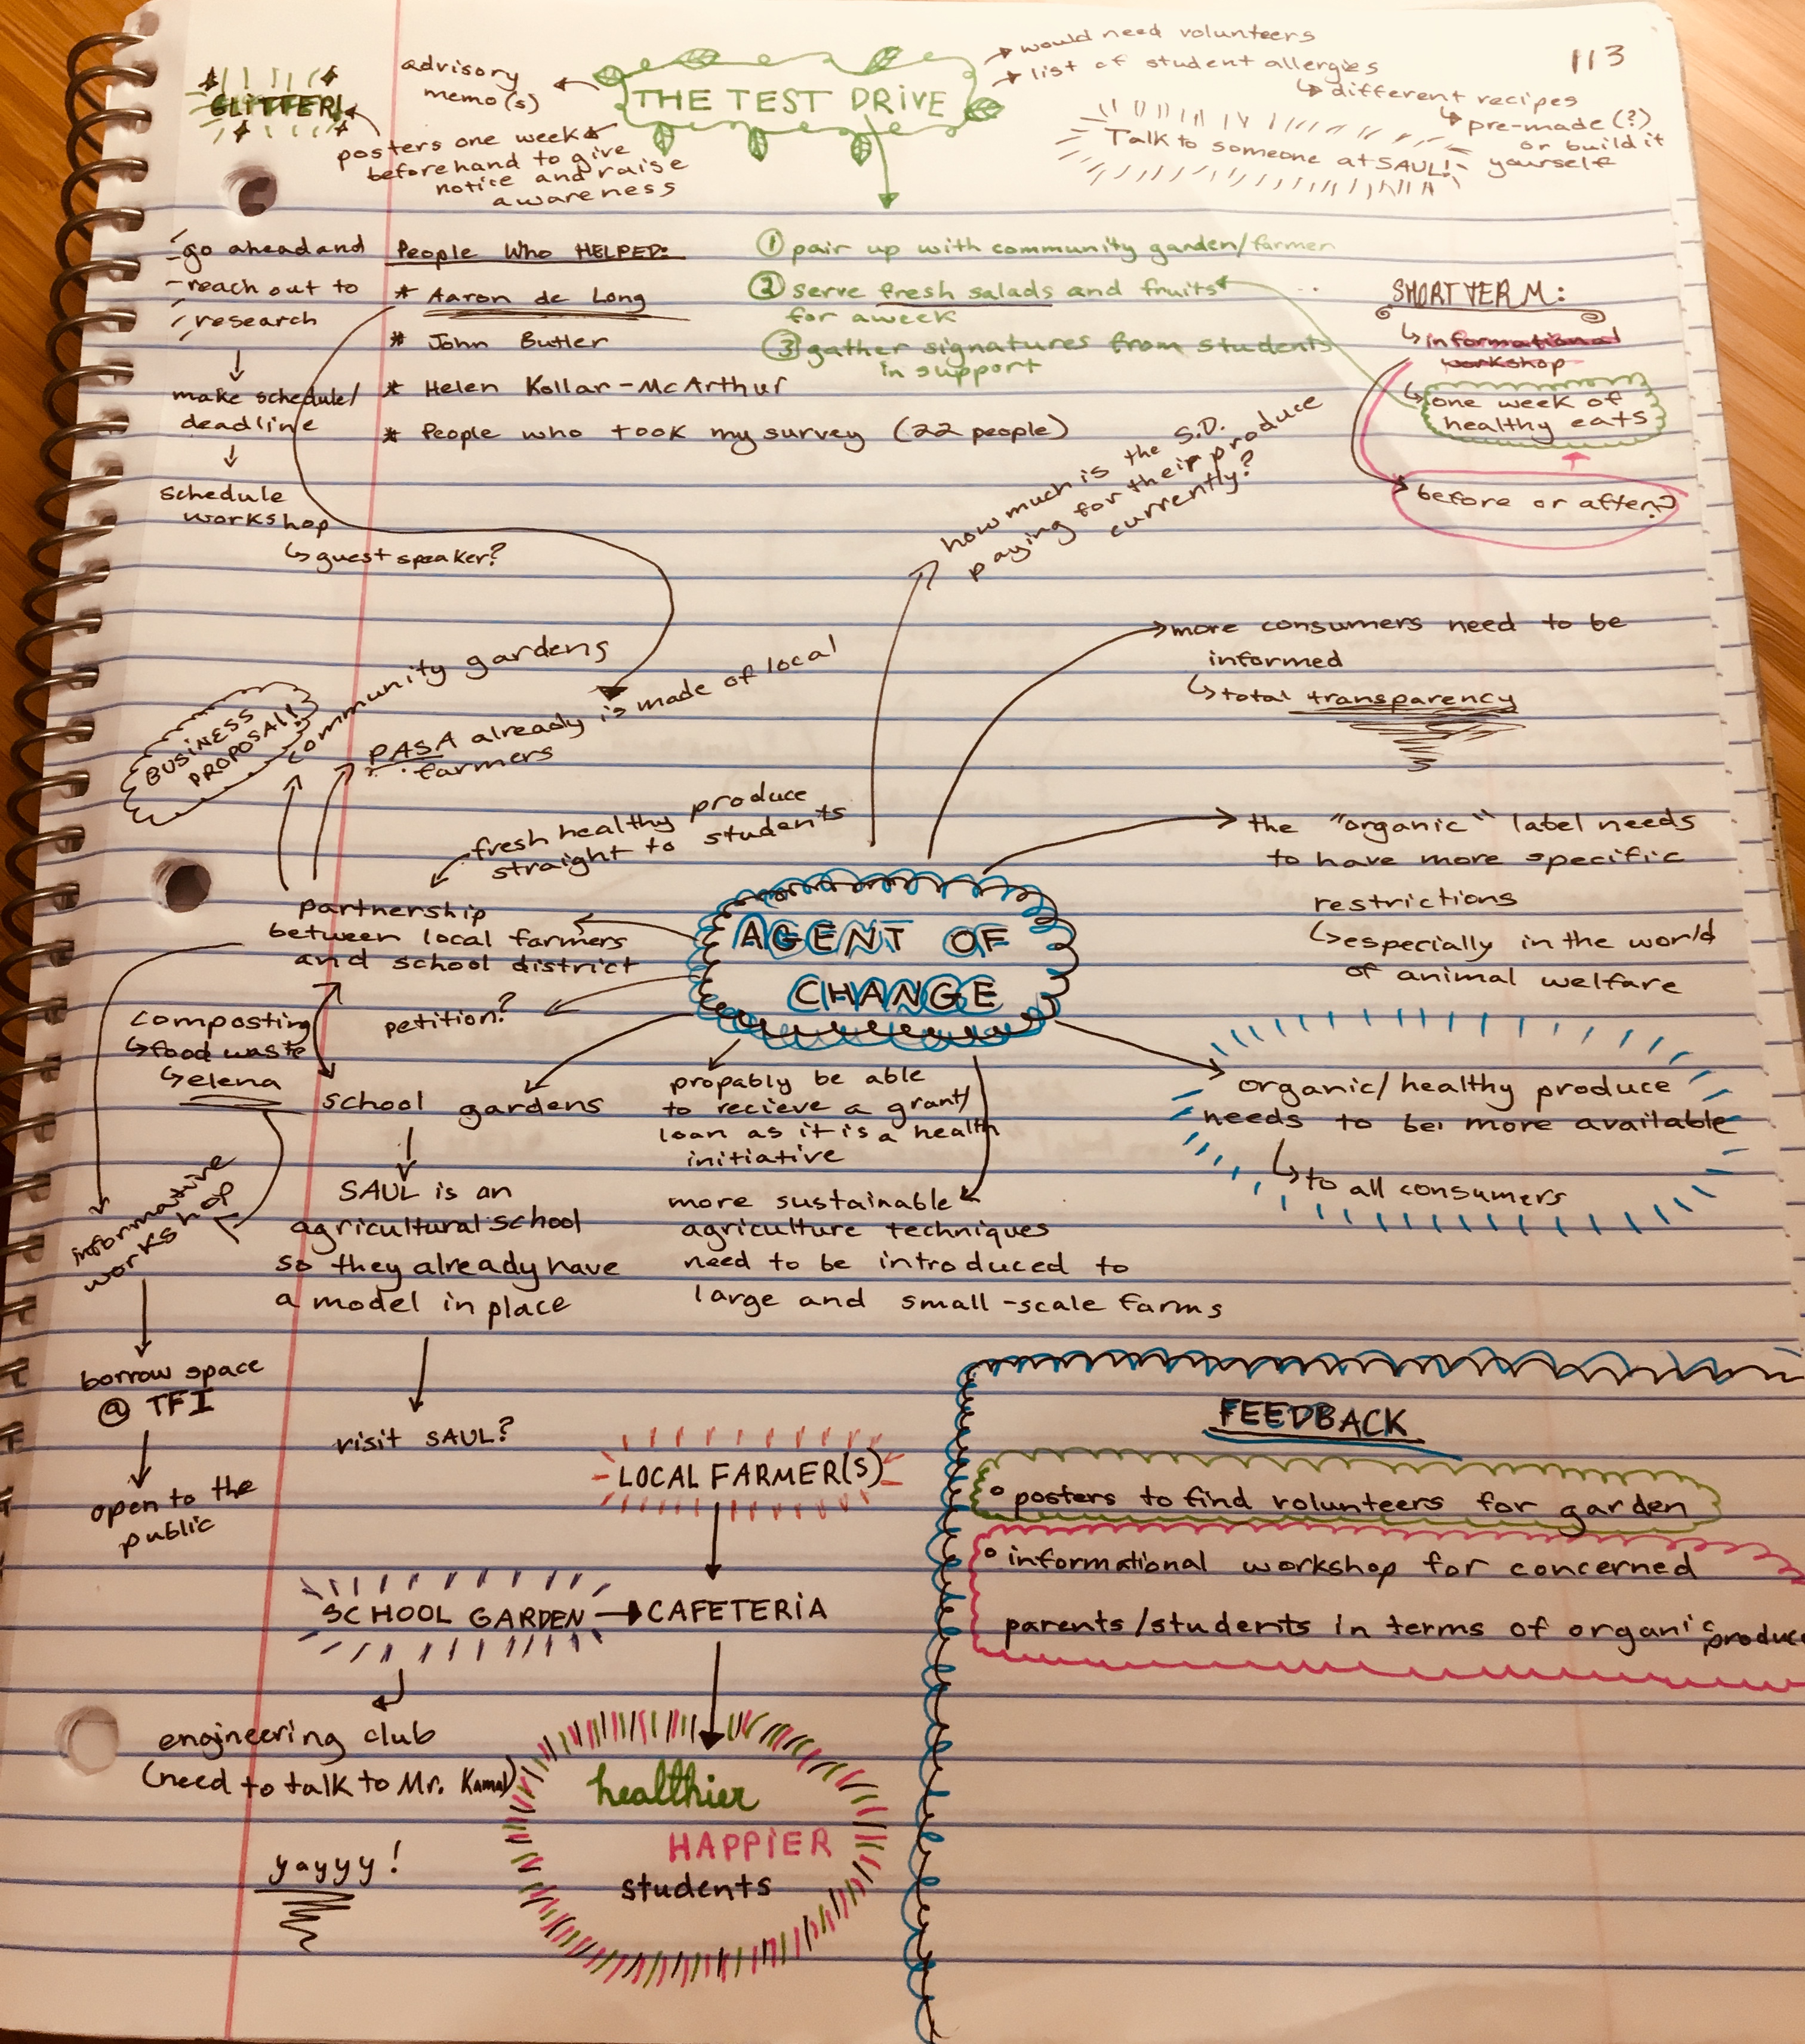 113
GLITTER!
advisory
memo(s)
THE TEST DRIVE
would need volunteers
list of student allergies
different recipes
pre-made (?)
or build it
yourself
Talk to someone at SAUL!
posters one week
beforehand to give
notice and raise
awareness
go ahead and
reach out to
research
make schedule/
deadline
schedule
workshop
guest speaker?
People Who HELPED:
* Aaron de Long
* John Butler
* Helen Kollar-McArthur
* People who took my survey (22 people)
① pair up with community garden/farmer
② serve fresh salads and fruits
for a week
③ gather signatures from students
in support
SHORT TERM:
informational
workshop
one week of
healthy eats
before or after?
how much is the S.D.
paying for their produce
currently?
more consumers need to be
informed
total transparency
BUSINESS
PROPOSAL!
community gardens
PASA already is made of local
farmers
fresh healthy produce
straight to students
the "organic" label needs
to have more specific
restrictions
especially in the world
of animal welfare
partnership
between local farmers
and school district
AGENT OF
CHANGE
petition?
composting
food waste
elena
school gardens
propably be able
to recieve a grant/
loan as it is a health
initiative
organic/healthy produce
needs to be more available
to all consumers
informative
workshop
SAUL is an
agricultural school
so they already have
a model in place
more sustainable
agriculture techniques
need to be introduced to
large and small-scale farms
borrow space
@ TFI
open to the
public
visit SAUL?
LOCAL FARMER(S)
SCHOOL GARDEN → CAFETERIA
engineering club
(need to talk to Mr. Kamal)
yayyy!
healthier
HAPPIER
students
FEEDBACK
° posters to find volunteers for garden
° informational workshop for concerned
parents/students in terms of organic produce